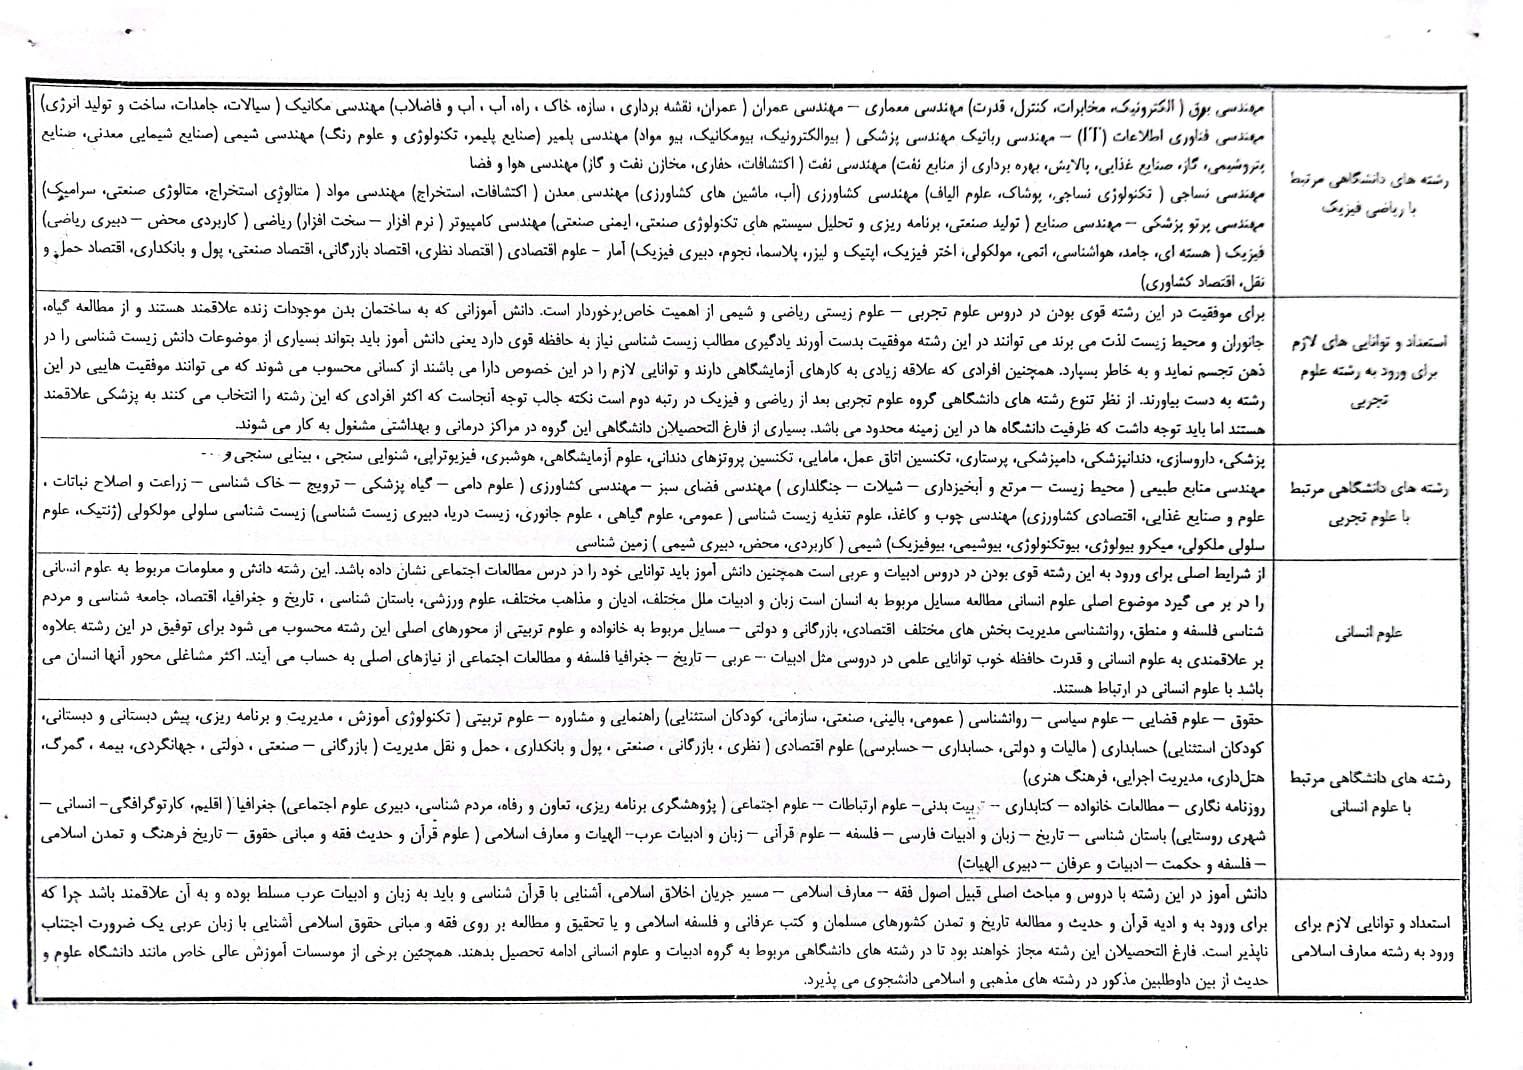 رشته های دانشگاهی مرتبط
با ریاضی فیزیک
مهندسی برق ( الکترونیک، مخابرات، کنترل، قدرت) مهندسی معماری – مهندسی عمران ( عمران، نقشه برداری ، سازه، خاک ، راه، آب ، آب و فاضلاب) مهندسی مکانیک ( سیالات، جامدات، ساخت و تولید انرژی)
مهندسی فناوری اطلاعات (IT) – مهندسی رباتیک مهندسی پزشکی ( بیوالکترونیک، بیومکانیک، بیو مواد) مهندسی پلمیر (صنایع پلیمر، تکنولوژی و علوم رنگ) مهندسی شیمی (صنایع شیمایی معدنی، صنایع
پتروشیمی، گاز، صنایع غذایی، پالایش، بهره برداری از منابع نفت) مهندسی نفت ( اکتشافات، حفاری، مخازن نفت و گاز) مهندسی هوا و فضا
مهندسی نساجی ( تکنولوژی نساجی، پوشاک، علوم الیاف) مهندسی کشاورزی (آب، ماشین های کشاورزی) مهندسی معدن ( اکتشافات، استخراج) مهندسی مواد ( متالوژی استخراج، متالوژی صنعتی، سرامیک)
مهندسی پرتو پزشکی – مهندسی صنایع ( تولید صنعتی، برنامه ریزی و تحلیل سیستم های تکنولوژی صنعتی، ایمنی صنعتی) مهندسی کامپیوتر ( نرم افزار – سخت افزار) ریاضی ( کاربردی محض – دبیری ریاضی)
فیزیک ( هسته ای، جامد، هواشناسی، اتمی، مولکولی، اختر فیزیک، اپتیک و لیزر، پلاسما، نجوم، دبیری فیزیک) آمار – علوم اقتصادی ( اقتصاد نظری، اقتصاد بازرگانی، اقتصاد صنعتی، پول و بانکداری، اقتصاد حمل و
نقل، اقتصاد کشاوری)
استعداد و توانایی های لازم
برای ورود به رشته علوم
تجربی
برای موفقیت در این رشته قوی بودن در دروس علوم تجربی – علوم زیستی ریاضی و شیمی از اهمیت خاص برخوردار است. دانش آموزانی که به ساختمان بدن موجودات زنده علاقمند هستند و از مطالعه گیاه،
جانوران و محیط زیست لذت می برند می توانند در این رشته موفقیت بدست آورند یادگیری مطالب زیست شناسی نیاز به حافظه قوی دارد یعنی دانش آموز باید بتواند بسیاری از موضوعات دانش زیست شناسی را در
ذهن تجسم نماید و به خاطر بسپارد. همچنین افرادی که علاقه زیادی به کارهای آزمایشگاهی دارند و توانایی لازم را در این خصوص دارا می باشند از کسانی محسوب می شوند که می توانند موفقیت هایی در این
رشته به دست بیاورند. از نظر تنوع رشته های دانشگاهی گروه علوم تجربی بعد از ریاضی و فیزیک در رتبه دوم است نکته جالب توجه آنجاست که اکثر افرادی که این رشته را انتخاب می کنند به پزشکی علاقمند
هستند اما باید توجه داشت که ظرفیت دانشگاه ها در این زمینه محدود می باشد. بسیاری از فارغ التحصیلان دانشگاهی این گروه در مراکز درمانی و بهداشتی مشغول به کار می شوند.
رشته های دانشگاهی مرتبط
با علوم تجربی
پزشکی، داروسازی، دندانپزشکی، دامپزشکی، پرستاری، تکنسین اتاق عمل، مامایی، تکنسین پروتزهای دندانی، علوم آزمایشگاهی، هوشبری، فیزیوتراپی، شنوایی سنجی ، بینایی سنجی و ...
مهندسی منابع طبیعی ( محیط زیست – مرتع و آبخیزداری – شیلات – جنگلداری ) مهندسی فضای سبز – مهندسی کشاورزی ( علوم دامی – گیاه پزشکی – ترویج – خاک شناسی – زراعت و اصلاح نباتات ،
علوم و صنایع غذایی، اقتصادی کشاورزی) مهندسی چوب و کاغذ، علوم تغذیه زیست شناسی ( عمومی، علوم گیاهی ، علوم جانوری، زیست دریا، دبیری زیست شناسی) زیست شناسی سلولی مولکولی (ژنتیک، علوم
سلولی ملکولی، میکرو بیولوژی، بیوتکنولوژی، بیوشیمی، بیوفیزیک) شیمی ( کاربردی، محض، دبیری شیمی ) زمین شناسی
علوم انسانی
از شرایط اصلی برای ورود به این رشته قوی بودن در دروس ادبیات و عربی است همچنین دانش آموز باید توانایی خود را در درس مطالعات اجتماعی نشان داده باشد. این رشته دانش و معلومات مربوط به علوم انسانی
را در بر می گیرد موضوع اصلی علوم انسانی مطالعه مسایل مربوط به انسان است زبان و ادبیات ملل مختلف، ادیان و مذاهب مختلف، علوم ورزشی، باستان شناسی ، تاریخ و جغرافیا، اقتصاد، جامعه شناسی و مردم
شناسی فلسفه و منطق، روانشناسی مدیریت بخش های مختلف اقتصادی، بازرگانی و دولتی – مسایل مربوط به خانواده و علوم تربیتی از محورهای اصلی این رشته محسوب می شود برای توفیق در این رشته علاوه
بر علاقمندی به علوم انسانی و قدرت حافظه خوب توانایی علمی در دروسی مثل ادبیات – عربی – تاریخ – جغرافیا فلسفه و مطالعات اجتماعی از نیازهای اصلی به حساب می آیند. اکثر مشاغلی محور آنها انسان می
باشد با علوم انسانی در ارتباط هستند.
رشته های دانشگاهی مرتبط
با علوم انسانی
حقوق – علوم قضایی – علوم سیاسی – روانشناسی ( عمومی، بالینی، صنعتی، سازمانی، کودکان استثنایی) راهنمایی و مشاوره – علوم تربیتی ( تکنولوژی آموزش ، مدیریت و برنامه ریزی، پیش دبستانی و دبستانی،
کودکان استثنایی) حسابداری ( مالیات و دولتی، حسابداری – حسابرسی) علوم اقتصادی ( نظری ، بازرگانی ، صنعتی ، پول و بانکداری ، حمل و نقل مدیریت ( بازرگانی – صنعتی ، دولتی ، جهانگردی، بیمه ، گمرگ،
هتل‌داری، مدیریت اجرایی، فرهنگ هنری)
روزنامه نگاری – مطالعات خانواده – کتابداری – تربیت بدنی– علوم ارتباطات – علوم اجتماعی ( پژوهشگری برنامه ریزی، تعاون و رفاه، مردم شناسی، دبیری علوم اجتماعی) جغرافیا ( اقلیم، کارتوگرافگی– انسانی –
شهری روستایی) باستان شناسی – تاریخ – زبان و ادبیات فارسی – فلسفه – علوم قرآنی – زبان و ادبیات عرب– الهیات و معارف اسلامی ( علوم قرآن و حدیث فقه و مبانی حقوق – تاریخ فرهنگ و تمدن اسلامی
– فلسفه و حکمت – ادبیات و عرفان – دبیری الهیات)
استعداد و توانایی لازم برای
ورود به رشته معارف اسلامی
دانش آموز در این رشته با دروس و مباحث اصلی قبیل اصول فقه – معارف اسلامی – مسیر جریان اخلاق اسلامی، آشنایی با قرآن شناسی و باید به زبان و ادبیات عرب مسلط بوده و به آن علاقمند باشد چرا که
برای ورود به و ادیه قرآن و حدیث و مطالعه تاریخ و تمدن کشورهای مسلمان و کتب عرفانی و فلسفه اسلامی و یا تحقیق و مطالعه بر روی فقه و مبانی حقوق اسلامی آشنایی با زبان عربی یک ضرورت اجتناب
ناپذیر است. فارغ التحصیلان این رشته مجاز خواهند بود تا در رشته های دانشگاهی مربوط به گروه ادبیات و علوم انسانی ادامه تحصیل بدهند. همچئین برخی از موسسات آموزش عالی خاص مانند دانشگاه علوم و
حدیث از بین داوطلبین مذکور در رشته های مذهبی و اسلامی دانشجوی می پذیرد.